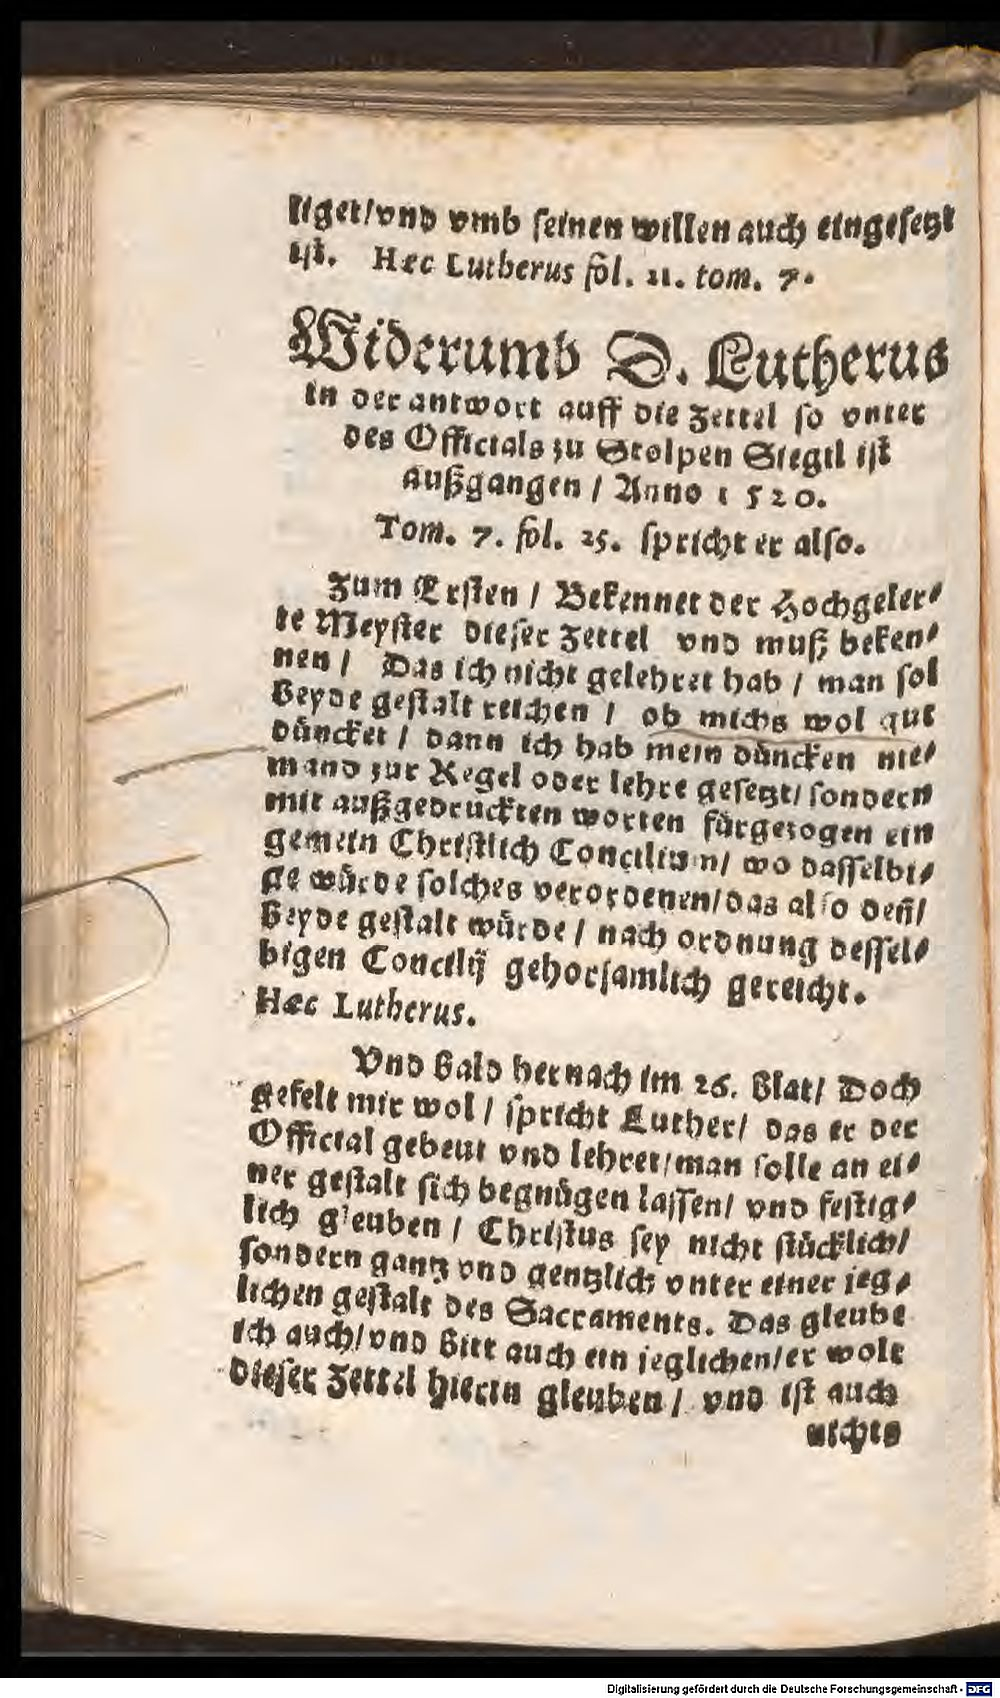 liget/vnd vmb seinen willen auch eingesetzt
ist. Hæc Lutherus fol. 21. tom. 7.
Widerumb D. Lutherus
in der antwort auff die Zettel so vnter
des Officials zu Stolpen Siegil ist
außgangen / Anno 1520.
Tom. 7. fol. 25. spricht er also.
Zum Ersten / Bekennet der Hochgeler-
te Meyster dieser Zettel vnd muß beken-
nen / Das ich nicht gelehret hab / man sol
Beyde gestalt reichen / ob michs wol gut
düncket / dann ich hab mein düncken nie-
mand zur Regel oder lehre gesetzt/ sondern
mit außgedruckten worten fürgezogen ein
gemein Christlich Concilium/ wo dasselbi-
ge würde solches verordenen/das also deñ/
Beyde gestalt würde / nach ordnung dessel-
bigen Concilij gehorsamlich gereicht.
Hæc Lutherus.
Vnd bald hernach im 26. Blat/ Doch
gefelt mir wol / spricht Luther/ das er der
Official gebeut vnd lehret/man solle an ei-
ner gestalt sich begnügen lassen/ vnd festig-
lich gleuben / Christus sey nicht stücklich/
sondern gantz vnd gentzlich vnter einer jeg-
lichen gestalt des Sacraments. Das gleube
ich auch/vnd Bitt auch ein jeglichen/er wolt
dieser Zettel hierin gleuben / vnd ist auch
nichts
Digitalisierung gefördert durch die Deutsche Forschungsgemeinschaft - DFG